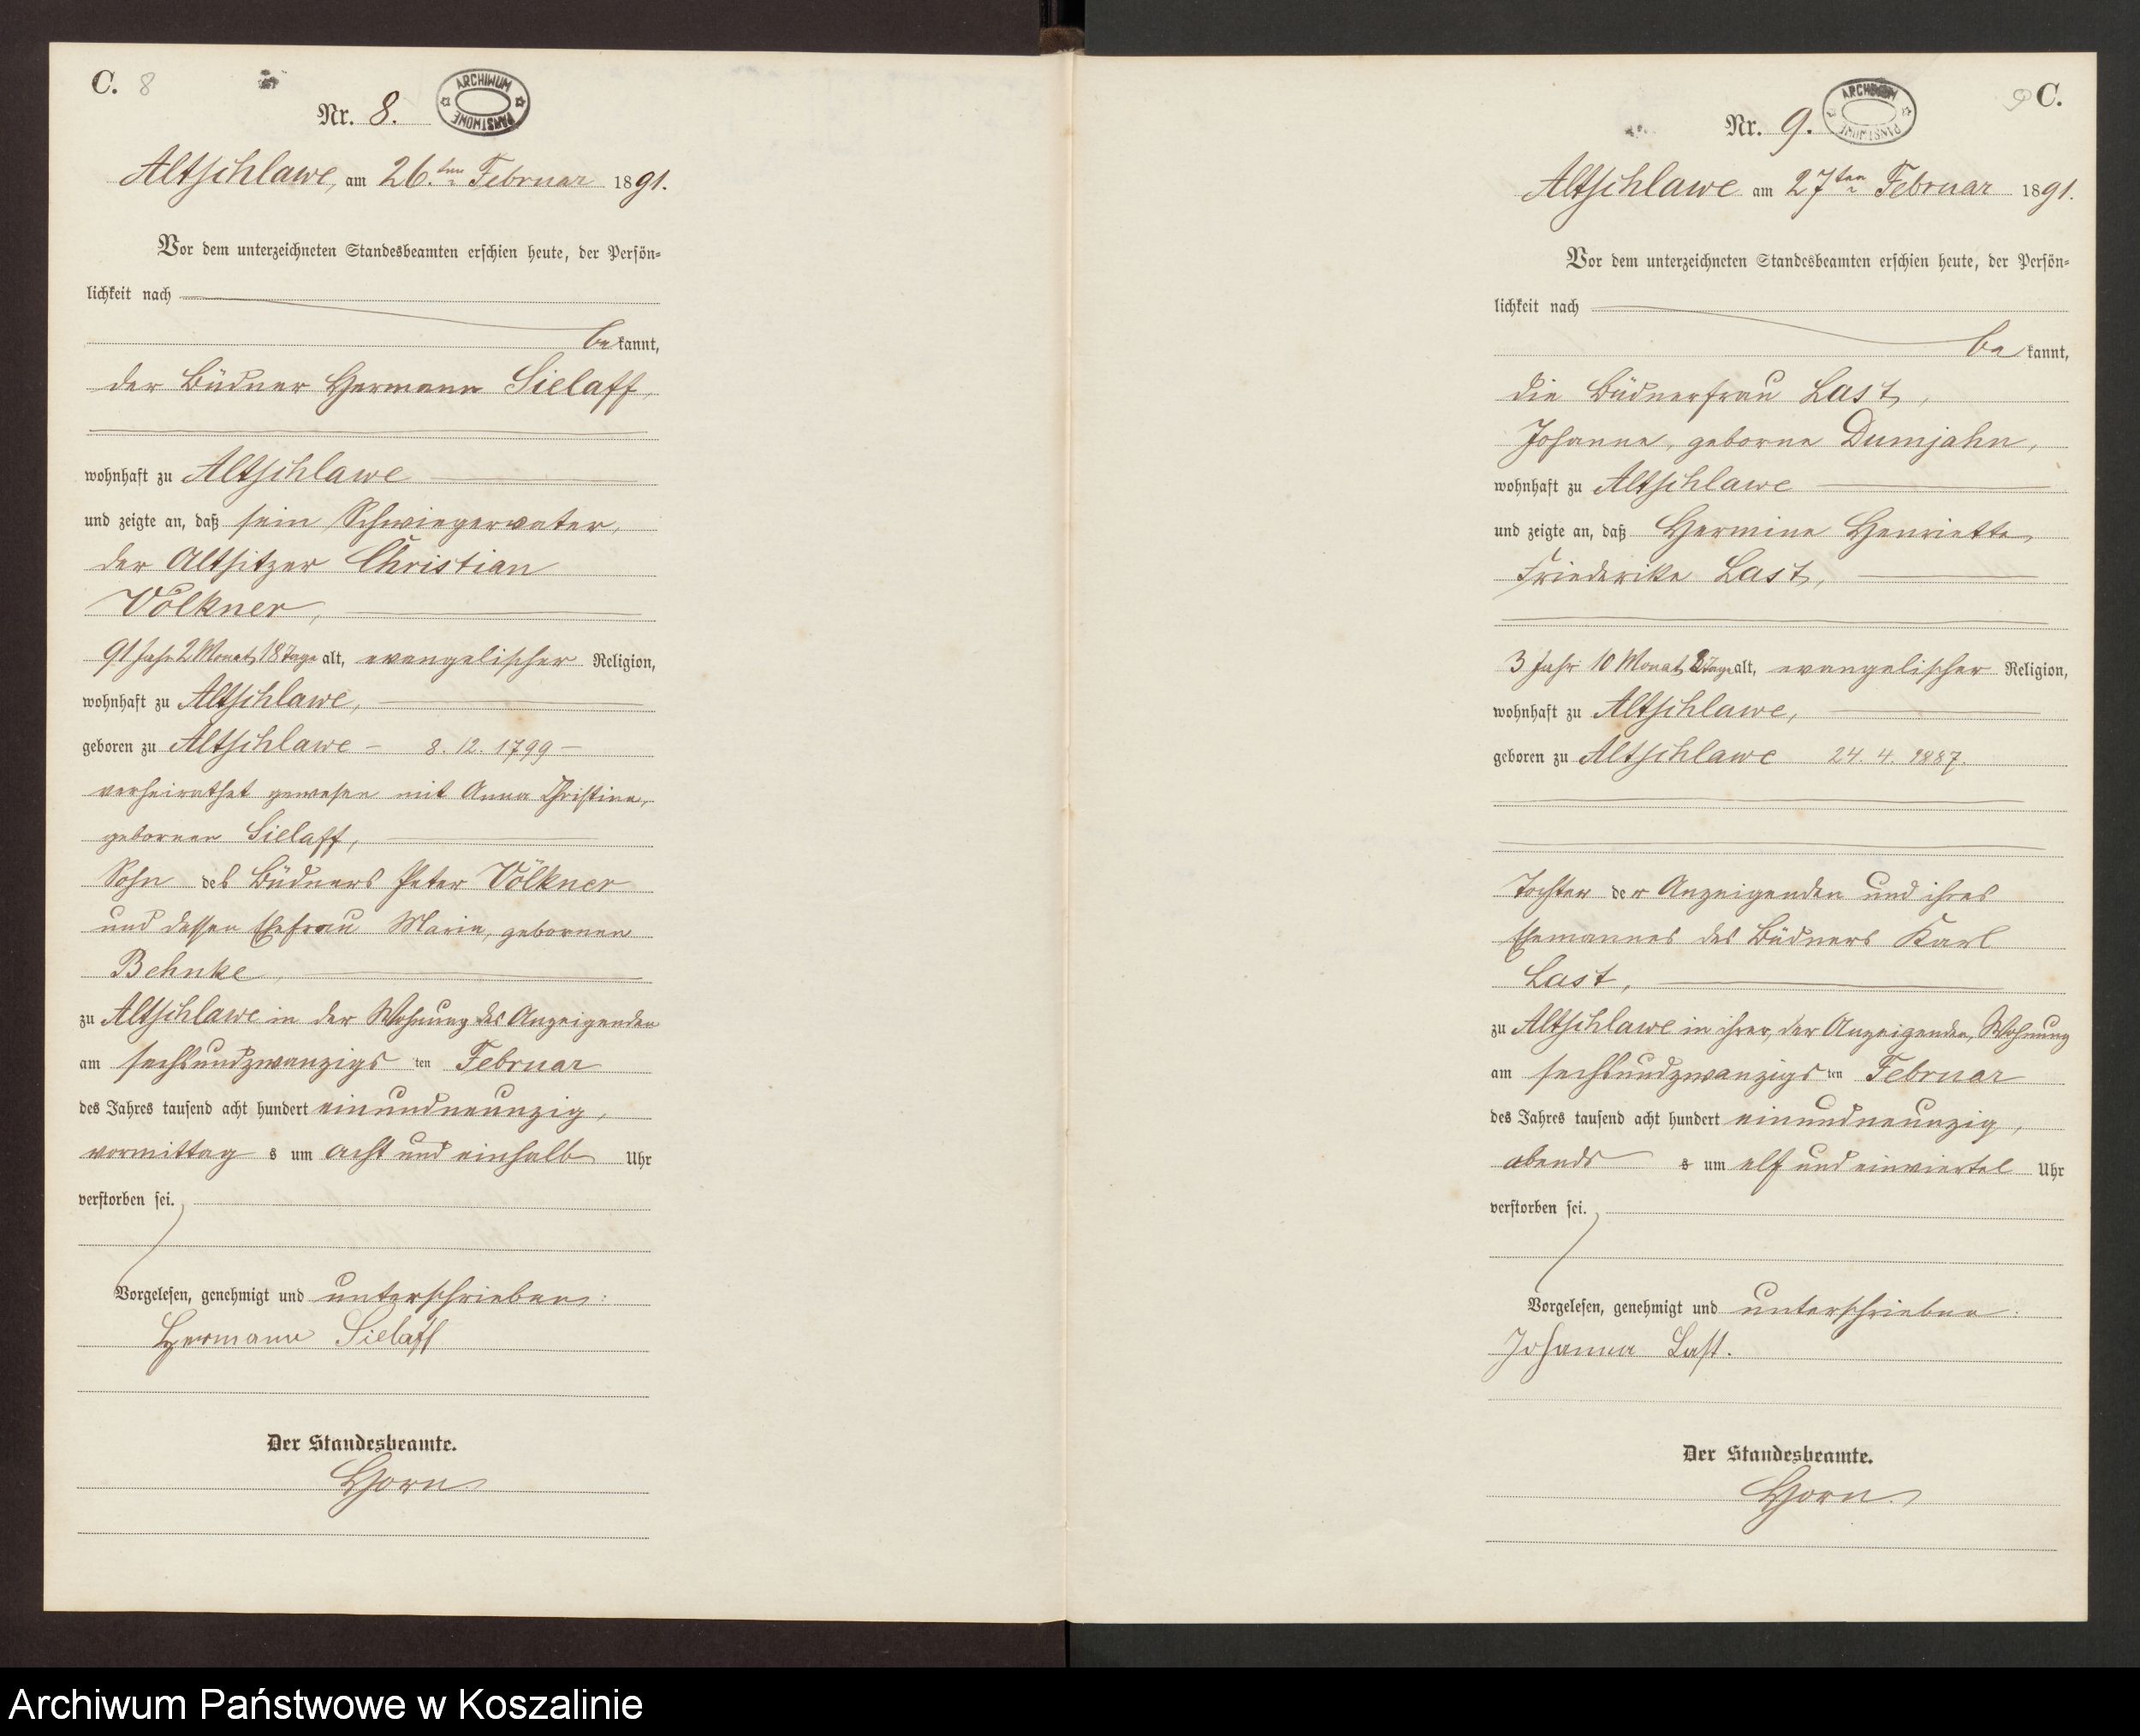 C. 8
Nr. 8.
ARCHIWUM PAŃSTWOWE
Altschlawe, am 26.ten Februar 1891.
Vor dem unterzeichneten Standesbeamten erschien heute, der Persön-
lichkeit nach
bekannt,
der Büdner Hermann Sielaff,
wohnhaft zu Altschlawe
und zeigte an, daß sein Schwiegervater,
der Altsitzer Christian
Völkner,
91 Jahr 2 Monat 18 Tage alt, evangelischer Religion,
wohnhaft zu Altschlawe,
geboren zu Altschlawe – 8. 12. 1799 –
verheirathet gewesen mit Anna Christine,
gebornen Sielaff,
Sohn des Büdners Peter Völkner
und dessen Ehefrau Marie, gebornen
Behnke,
zu Altschlawe in der Wohnung des Anzeigenden
am sechsundzwanzigsten Februar
des Jahres tausend acht hundert einundneunzig,
vormittags um acht und einhalb Uhr
verstorben sei.
Vorgelesen, genehmigt und unterschrieben:
Hermann Sielaff
Der Standesbeamte.
Horn.
9 C.
Nr. 9.
ARCHIWUM PAŃSTWOWE
Altschlawe am 27ten Februar 1891.
Vor dem unterzeichneten Standesbeamten erschien heute, der Persön-
lichkeit nach
bekannt,
die Büdnerfrau Last,
Johanne, geborne Dumjahn,
wohnhaft zu Altschlawe
und zeigte an, daß Hermine Henriette
Friederike Last,
3 Jahr 10 Monat 2 Tage alt, evangelischer Religion,
wohnhaft zu Altschlawe,
geboren zu Altschlawe 24. 4. 1887.
Tochter der Anzeigenden und ihres
Ehemannes des Büdners Karl
Last,
zu Altschlawe in ihrer, der Anzeigenden, Wohnung
am sechsundzwanzigsten Februar
des Jahres tausend acht hundert einundneunzig,
abends um elf und einviertel Uhr
verstorben sei.
Vorgelesen, genehmigt und unterschrieben:
Johanna Last.
Der Standesbeamte.
Horn.
Archiwum Państwowe w Koszalinie